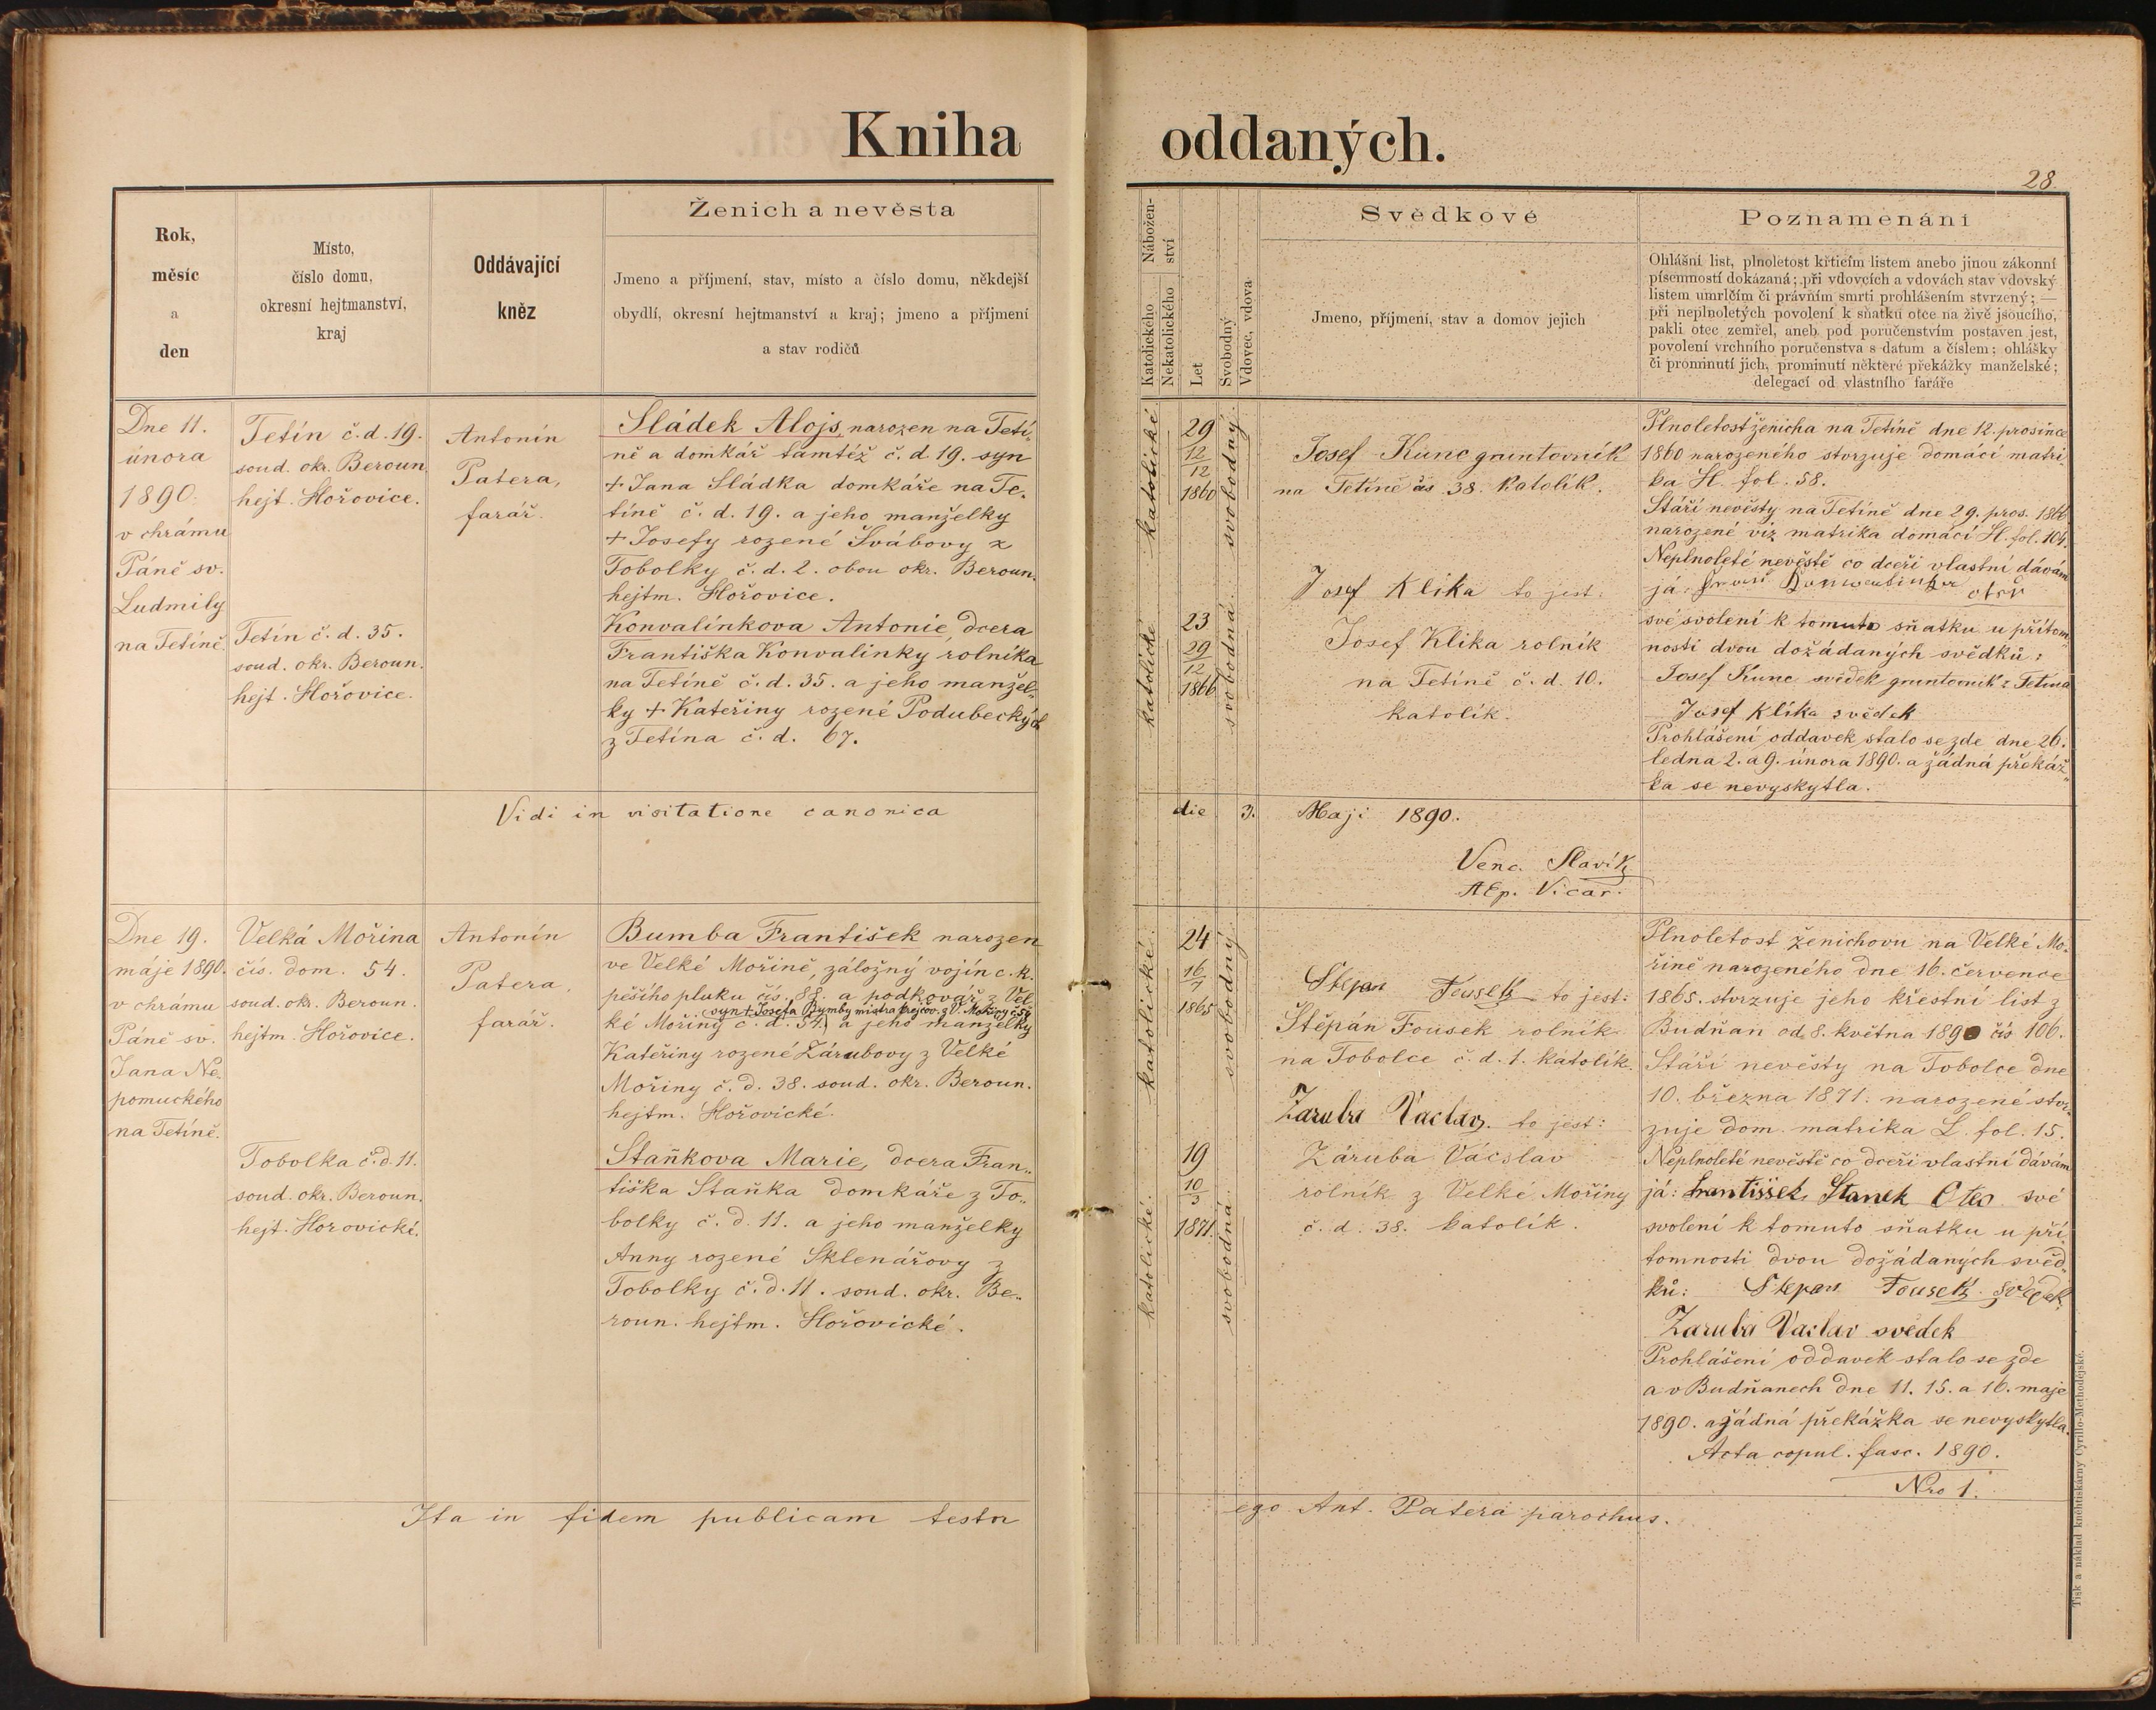 Kniha oddaných.
28.
Rok,
měsíc
a
den
Místo,
číslo domu,
okresní hejtmanství,
kraj
Oddávající
kněz
Ženich a nevěsta
Jmeno a příjmení, stav, místo a číslo domu, někdejší
obydlí, okresní hejtmanství a kraj; jmeno a příjmení
a stav rodičů
Nábožen-
ství
Katolického
Nekatolického
Let
Svobodný
Vdovec, vdova
Svědkové
Jmeno, příjmení, stav a domov jejich
Poznamenání
Ohlášní list, plnoletost křticím listem anebo jinou zákonní
písemností dokázaná; při vdovcích a vdovách stav vdovský
listem umrlčím či právním smrti prohlášením stvrzený; —
při neplnoletých povolení k sňatku otce na živě jsoucího,
pakli otec zemřel, aneb pod poručenstvím postaven jest,
povolení vrchního poručenstva s datum a číslem; ohlášky
či prominutí jich, prominutí některé překážky manželské;
delegací od vlastního faráře
Dne 11.
února
1890.
v chrámu
Páně sv.
Ludmily
na Tetíně.
Tetín č. d. 19.
soud. okr. Beroun
hejt. Hořovice.
Tetín č. d. 35.
soud. okr. Beroun.
hejt. Hořovice.
Antonín
Patera,
farář.
Sládek Alojs, narozen na Tetí-
ně a domkář tamtéž č. d. 19. syn
+ Jana Sládka domkáře na Te-
tíně č. d. 19. a jeho manželky
+ Josefy rozené Švábovy z
Tobolky č. d. 2. obou okr. Beroun.
hejtm. Hořovice.
Konvalinkova Antonie, dcera
Františka Konvalinky rolníka
na Tetíně č. d. 35. a jeho manžel-
ky + Kateřiny rozené Podubeckých
z Tetína č. d. 67.
katolické
29
12
12
1860
svobodný
katolické
23
29
12
1866
svobodná
Josef Kunc gruntovník
na Tetíně čs 38. Katolík.
Josef Klika to jest:
Josef Klika rolník
na Tetíně č. d. 10.
katolík.
Plnoletost ženicha na Tetíně dne 12. prosince
1860 narozeného stvrzuje domácí matri-
ka H. fol. 58.
Stáří nevěsty na Tetíně dne 29. pros. 1866
narozené viz matrika domácí H. fol. 104.
Neplnoleté nevěstě co dceři vlastní dávám
já: otec
své svolení k tomuto sňatku u přítom-
nosti dvou dožádaných svědků:
Josef Kunc svědek gruntovník z Tetína
Josef Klika svědek
Prohlášení oddavek stalo se zde dne 26.
ledna 2. a 9. února 1890. a žádná překáž-
ka se nevyskytla.
Vidi in visitatione canonica die 3. Maji 1890.
Venc. Slavík
AEp. Vicar.
Dne 19.
máje 1890.
v chrámu
Páně sv.
Jana Ne-
pomuckého
na Tetíně.
Velká Mořina
čís. dom. 54.
soud. okr. Beroun.
hejtm. Hořovice.
Tobolka č. d. 11.
soud. okr. Beroun.
hejt. Horovické.
Antonín
Patera,
farář.
Bumba František narozen
ve Velké Mořině, záložný vojín c. k.
pěšího pluku čís. 88. a podkovář z Vel-
syn + Josefa Bumby mistra krejčov. z V. Mořiny č. 54
ké Mořiny č. d. 54. a jeho manželky
Kateřiny rozené Zárubovy z Velké
Mořiny č. d. 38. soud. okr. Beroun.
hejtm. Hořovické.
Staňkova Marie, dcera Fran-
tiška Staňka domkáře z To-
bolky č. d. 11. a jeho manželky
Anny rozené Sklenářovy z
Tobolky č. d. 11. soud. okr. Be-
roun. hejtm. Hořovické.
katolické
24
16
7
1865
svobodný
katolické
19
10
3
1871.
svobodná
Stepan Fousek to jest:
Štěpán Fousek rolník
na Tobolce č. d. 1. katolík.
Zaruba Vaclav. to jest:
Záruba Václav
rolník z Velké Mořiny
č. d. 38. katolík.
Plnoletost ženichovu na Velké Mo-
řině narozeného dne 16. července
1865. stvrzuje jeho křestní list z
Budňan od 8. května 1890 čís 106.
Stáří nevěsty na Tobolce dne
10. března 1871. narozené stvr-
zuje dom. matrika L. fol. 15.
Neplnoleté nevěstě co dceři vlastní dávám
já: Frantissek Stanek Otec své
svolení k tomuto sňatku u pří-
tomnosti dvou dožádaných svěd-
ků: Stepan Fousek svědek
Zaruba Vaclav svědek
Prohlášení oddavek stalo se zde
a v Budňanech dne 11. 15. a 16. maje
1890. a žádná překážka se nevyskytla.
Acta copul. fasc. 1890.
Nro 1.
Ita in fidem publicam testor ego Ant. Patera parochus.
Tisk a náklad knihtiskárny Cyrillo-Methodějské.